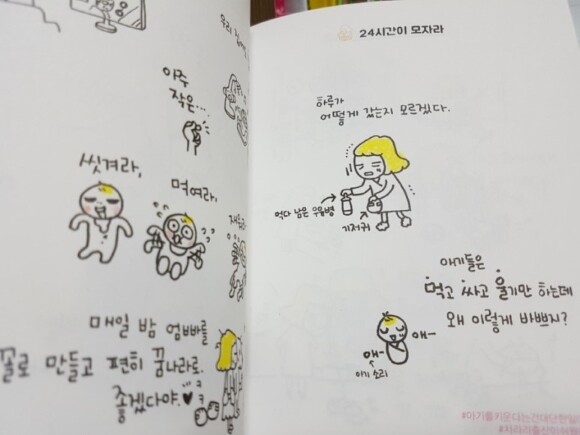 우리
아주
작은...
씻겨라,
먹여라,
매일 밤 엄빠를
꼴로 만들고 편히 꿈나라로.
좋겠다야.♥ㅋㅋ
24시간이 모자라
하루가
어떻게 갔는지 모르겠다.
먹다 남은 우유병
기저귀
아기들은
먹고 싸고 울기만 하는데
왜 이렇게 바쁘지?
애-
애-
아기 소리
#아기를키운다는건대단한일